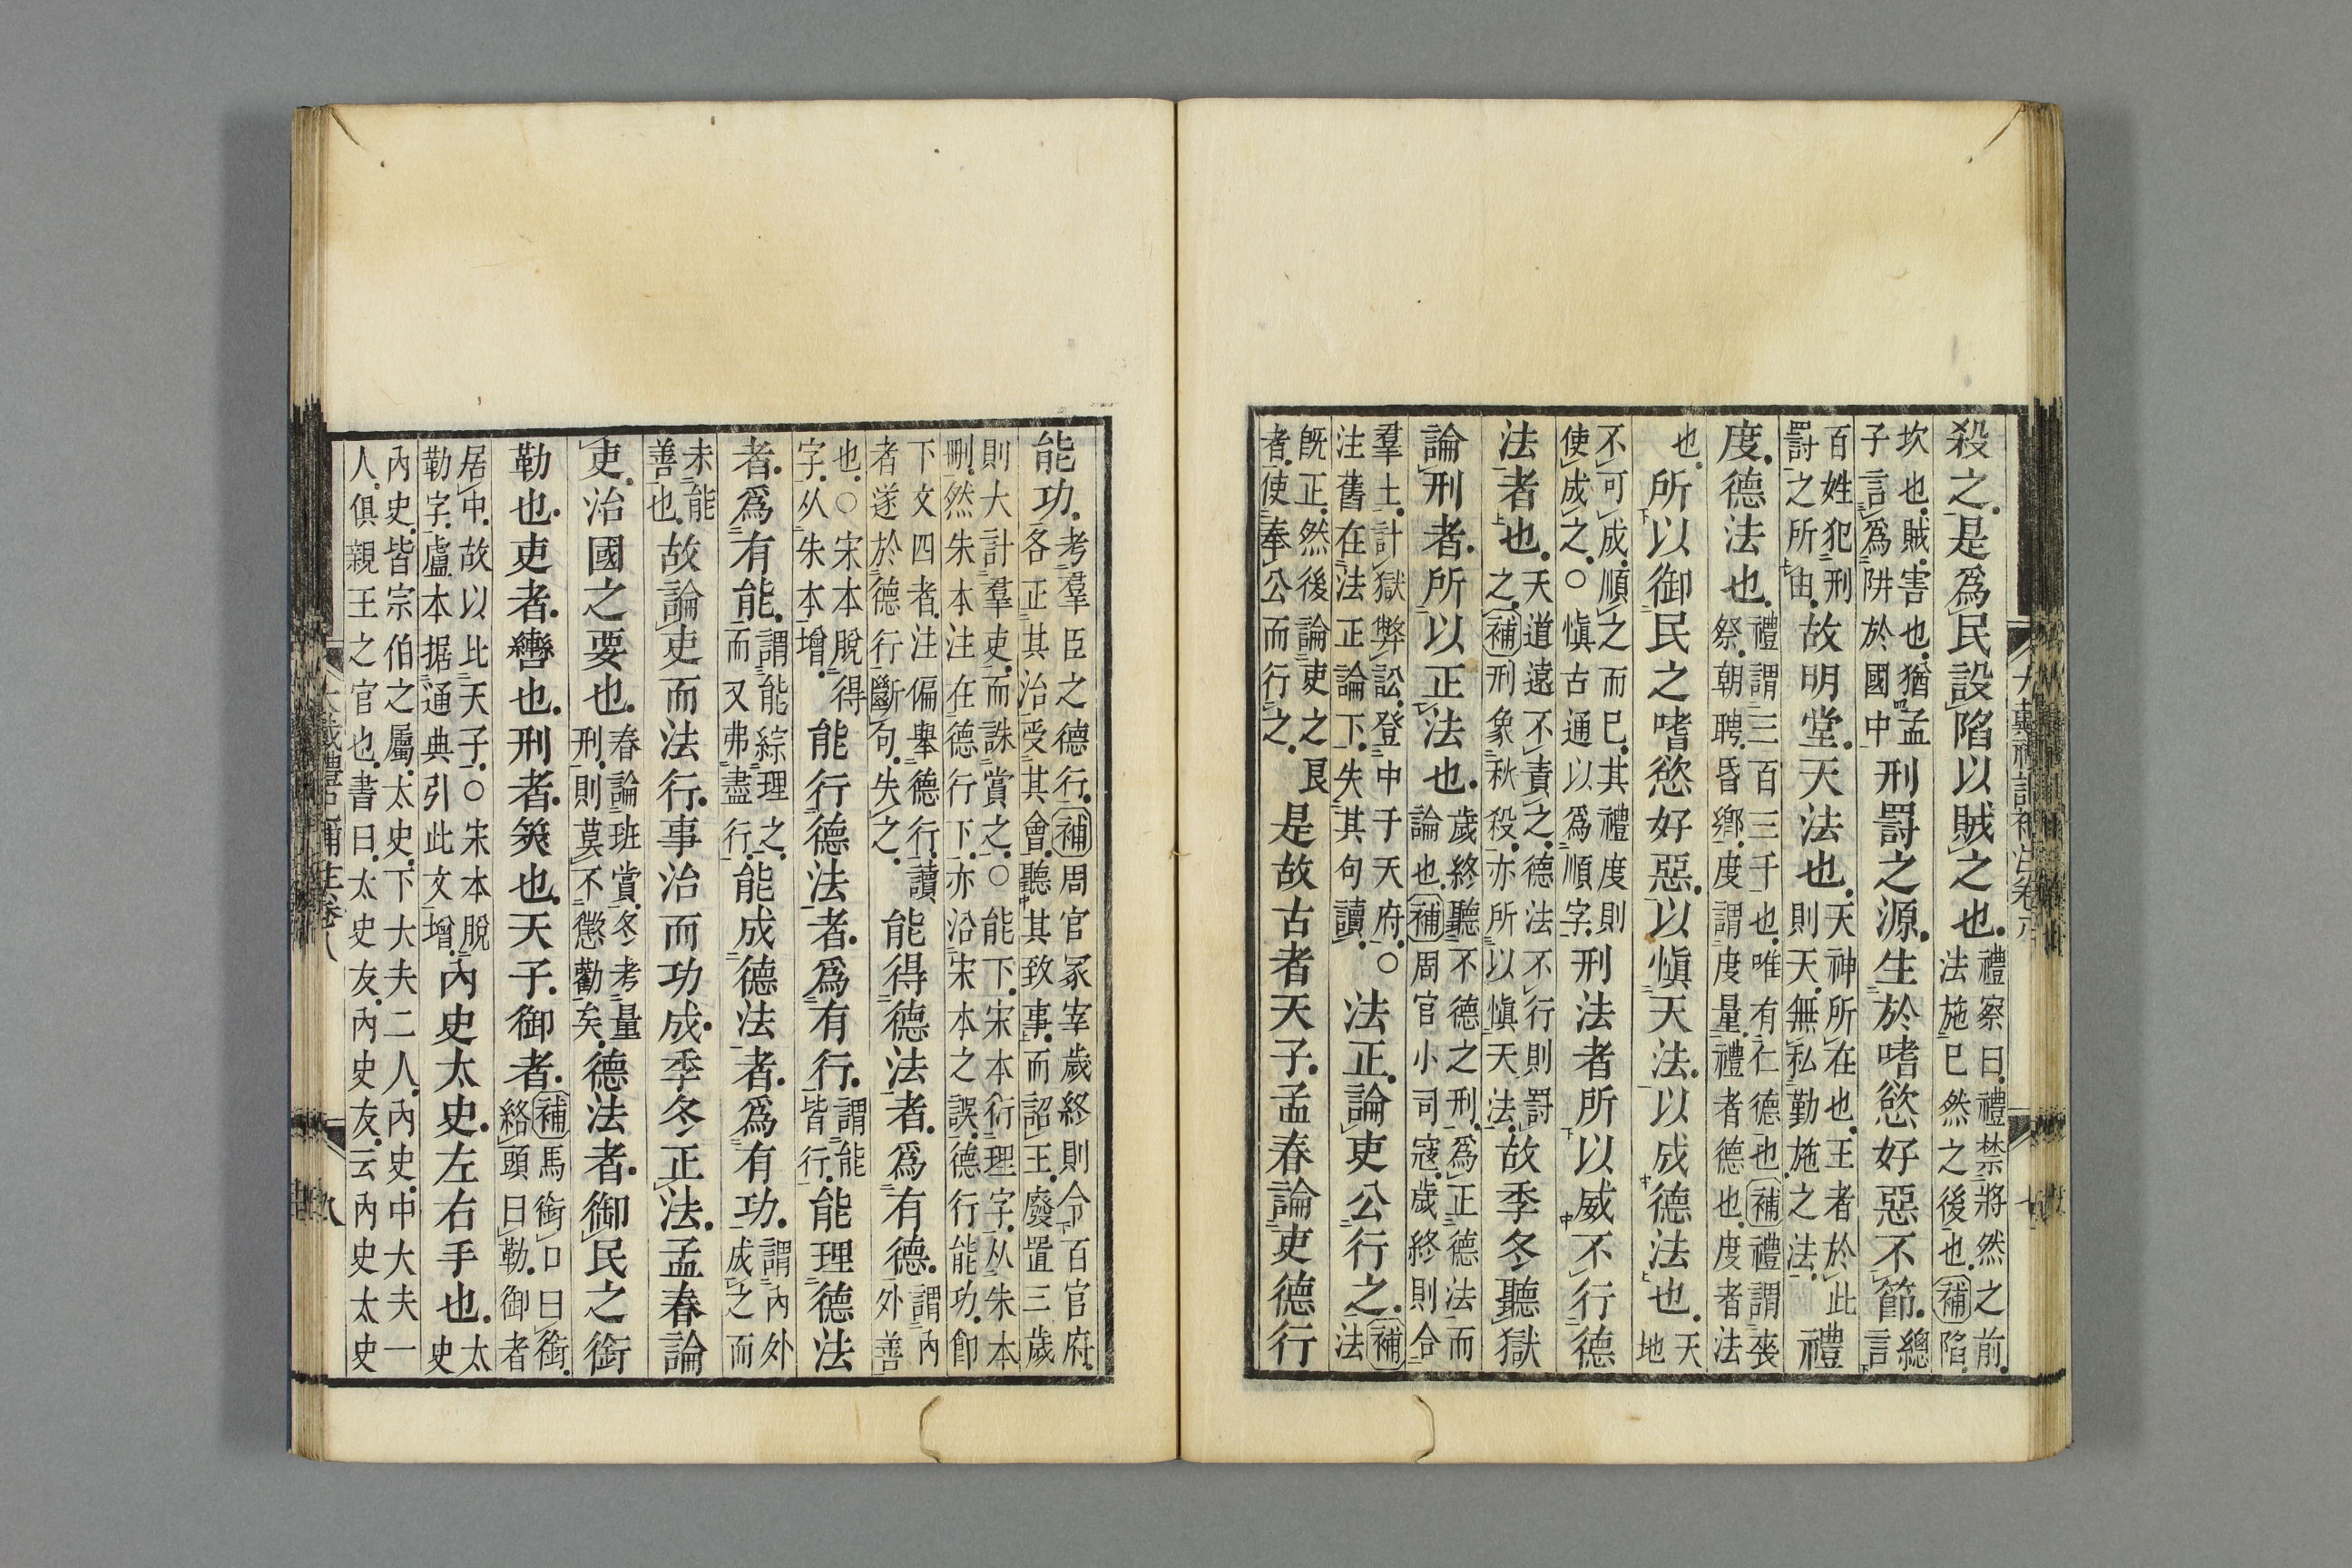 殺之是爲民設陷以賊之也禮察曰禮禁將然之前法施已然之後也補陷
坎也賊害也猶孟子言爲阱於國中刑罰之源生於嗜慾好惡不節總言
百姓犯刑罰之所由故明堂天法也天神所在也王者於此則天無私勤施之法禮
度德法也禮謂三百三千也唯有仁德也補禮謂喪祭朝聘昏鄉度謂度量禮者德也度者法
也所以御民之嗜慾好惡以慎天法以成德法也天地
不可成順之而已其禮度則使成之○慎古通以爲順字刑法者所以威不行德
法者也天道遠不責之德法不行則罰之補刑象秋殺亦所以慎天法故季冬聽獄
論刑者所以正法也歲終聽不德之刑爲正德法而論也補周官小司寇歲終則令
羣士計獄弊訟登中于天府○注舊在法正論下失其句讀法正論吏公行之補法
既正然後論吏之良者使奉公而行之是故古者天子孟春論吏德行
能功考羣臣之德行補周官冢宰歲終則令百官府各正其治受其會聽其致事而詔王廢置三歲
則大計羣吏而誅賞之○能下宋本衍理字从朱本刪然朱本注在德行下亦沿宋本之誤德行能功卽
下文四者注偏舉德行讀者遂於德行斷句失之能得德法者爲有德謂內外善
也○宋本脫得字从朱本增能行德法者爲有行謂能皆行能理德法
者爲有能謂能綜理之而又弗盡行能成德法者爲有功謂內外成之而
未能善也故論吏而法行事治而功成季冬正法孟春論
吏治國之要也春論班賞冬考量刑則莫不懲勸矣德法者御民之銜
勒也吏者轡也刑者筴也天子御者補馬銜口曰銜絡頭曰勒御者
居中故以比天子○宋本脫勒字盧本据通典引此文增內史太史左右手也太史
內史皆宗伯之屬太史下大夫二人內史中大夫一人俱親王之官也書曰太史友內史友云內史太史